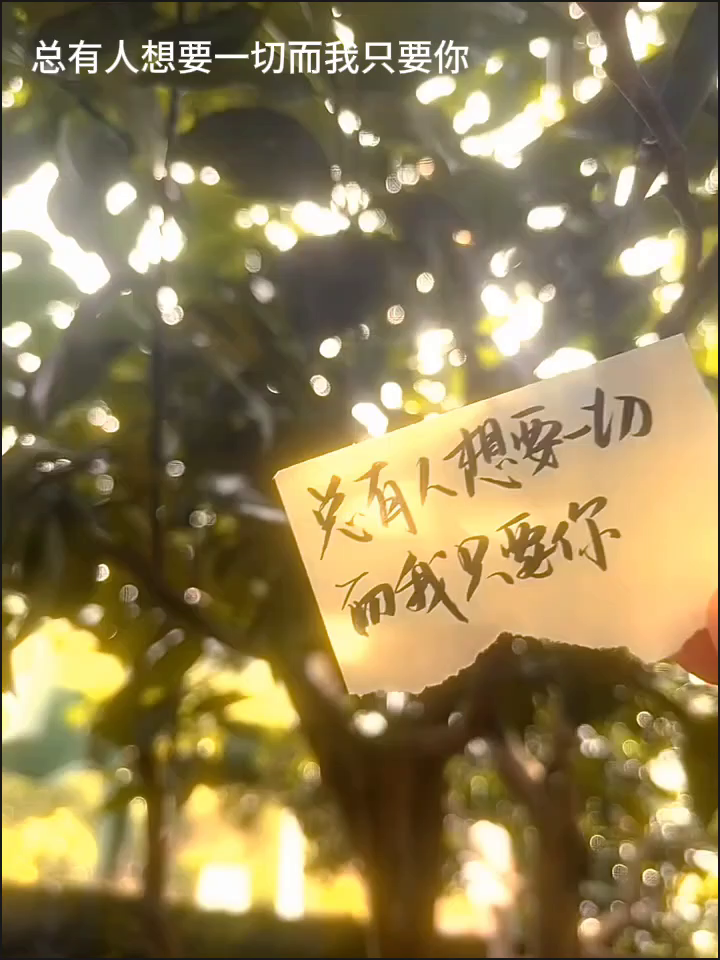 总有人想要一切而我只要你
总有人想要一切
而我只要你